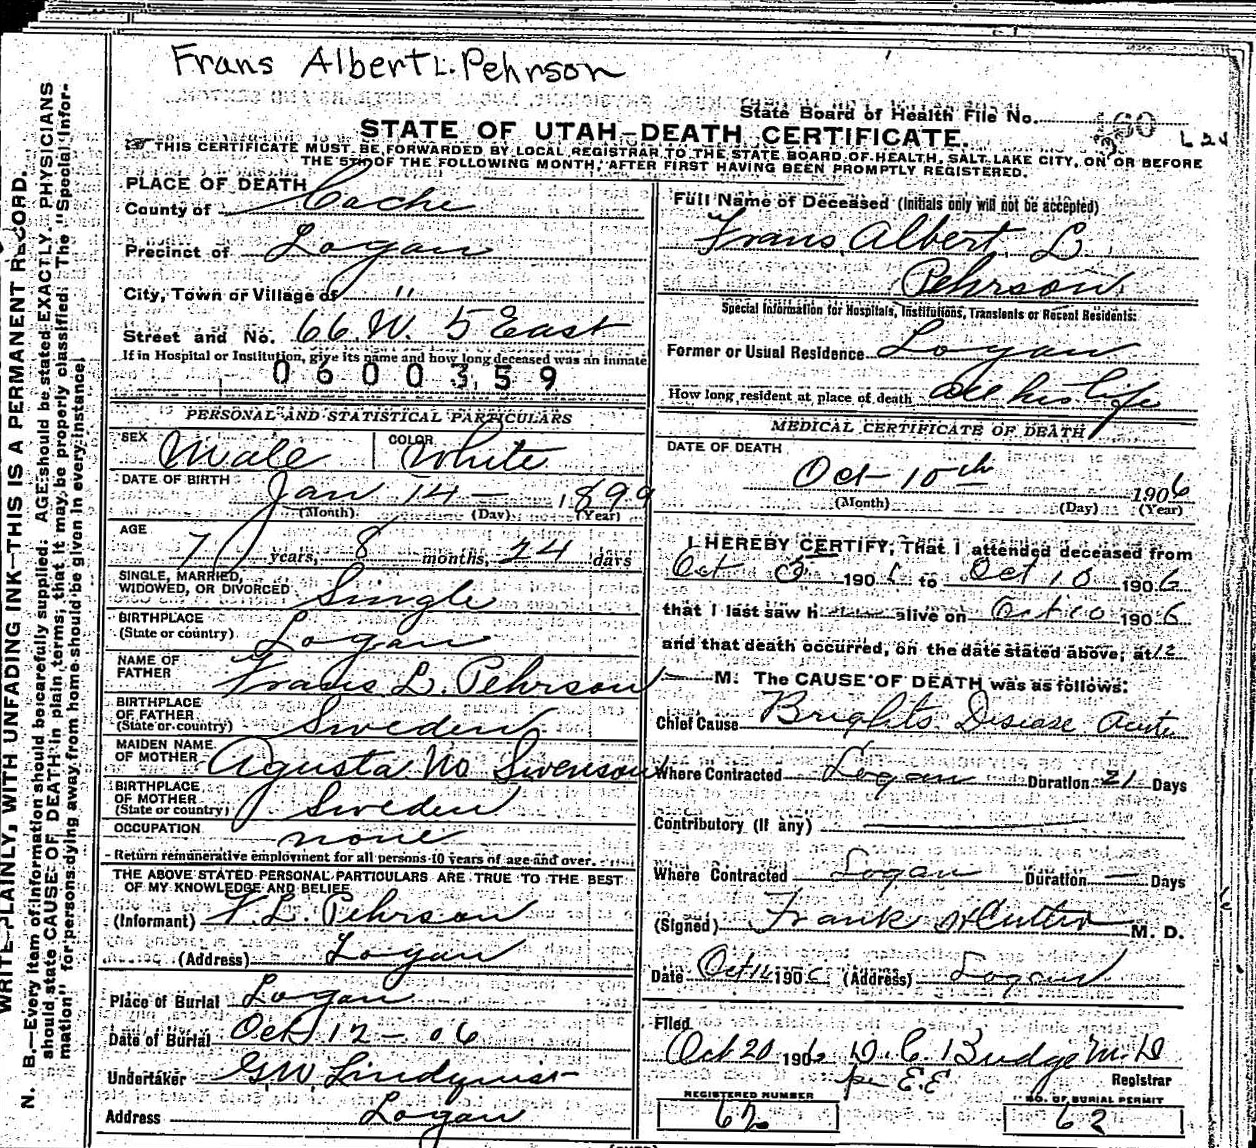 Frans Albert L. Pehrson
State Board of Health File No. 360
STATE OF UTAH—DEATH CERTIFICATE.
THIS CERTIFICATE MUST BE FORWARDED BY LOCAL REGISTRAR TO THE STATE BOARD OF HEALTH, SALT LAKE CITY, ON OR BEFORE
THE 5TH OF THE FOLLOWING MONTH, AFTER FIRST HAVING BEEN PROMPTLY REGISTERED.
PLACE OF DEATH
County of Cache
Precinct of Logan
City, Town or Village of "
Street and No. 66 W. 5 East
If in Hospital or Institution, give its name and how long deceased was an inmate
0600359
PERSONAL AND STATISTICAL PARTICULARS
SEX Male COLOR White
DATE OF BIRTH Jan 14 — 1899
(Month) (Day) (Year)
AGE 7 years, 8 months, 24 days
SINGLE, MARRIED,
WIDOWED, OR DIVORCED Single
BIRTHPLACE
(State or country) Logan
NAME OF
FATHER Frans L. Pehrson
BIRTHPLACE
OF FATHER
(State or country) Sweden
MAIDEN NAME
OF MOTHER Agusta No Swenson
BIRTHPLACE
OF MOTHER
(State or country) Sweden
OCCUPATION none
Return remunerative employment for all persons 10 years of age and over.
THE ABOVE STATED PERSONAL PARTICULARS ARE TRUE TO THE BEST
OF MY KNOWLEDGE AND BELIEF
(Informant) F. L. Pehrson
(Address) Logan
Place of Burial Logan
Date of Burial Oct 12 - 06
Undertaker G.W. Lindquist
Address Logan
Full Name of Deceased (Initials only will not be accepted)
Frans Albert L.
Pehrson
Special Information for Hospitals, Institutions, Transients or Recent Residents:
Former or Usual Residence Logan
How long resident at place of death all his life
MEDICAL CERTIFICATE OF DEATH
DATE OF DEATH
Oct 10th 1906
(Month) (Day) (Year)
I HEREBY CERTIFY, That I attended deceased from
Oct 1906 to Oct 10 1906
that I last saw h alive on Oct 10 1906
and that death occurred, on the date stated above, at 12
M. The CAUSE OF DEATH was as follows:
Chief Cause Brights Disease Acute
Where Contracted Logan Duration 21 Days
Contributory (If any) —
Where Contracted Logan Duration — Days
(Signed) Frank M. D.
Date Oct 1906 (Address) Logan
Filed
Oct 20 1906 D. C. Budge M. D
per E.E Registrar
REGISTERED NUMBER NO. OF BURIAL PERMIT
62 62
WRITE PLAINLY, WITH UNFADING INK—THIS IS A PERMANENT RECORD.
N. B.—Every item of information should be carefully supplied. AGE should be stated EXACTLY. PHYSICIANS
should state CAUSE OF DEATH in plain terms, that it may be properly classified. The "Special Infor-
mation" for persons dying away from home should be given in every instance.